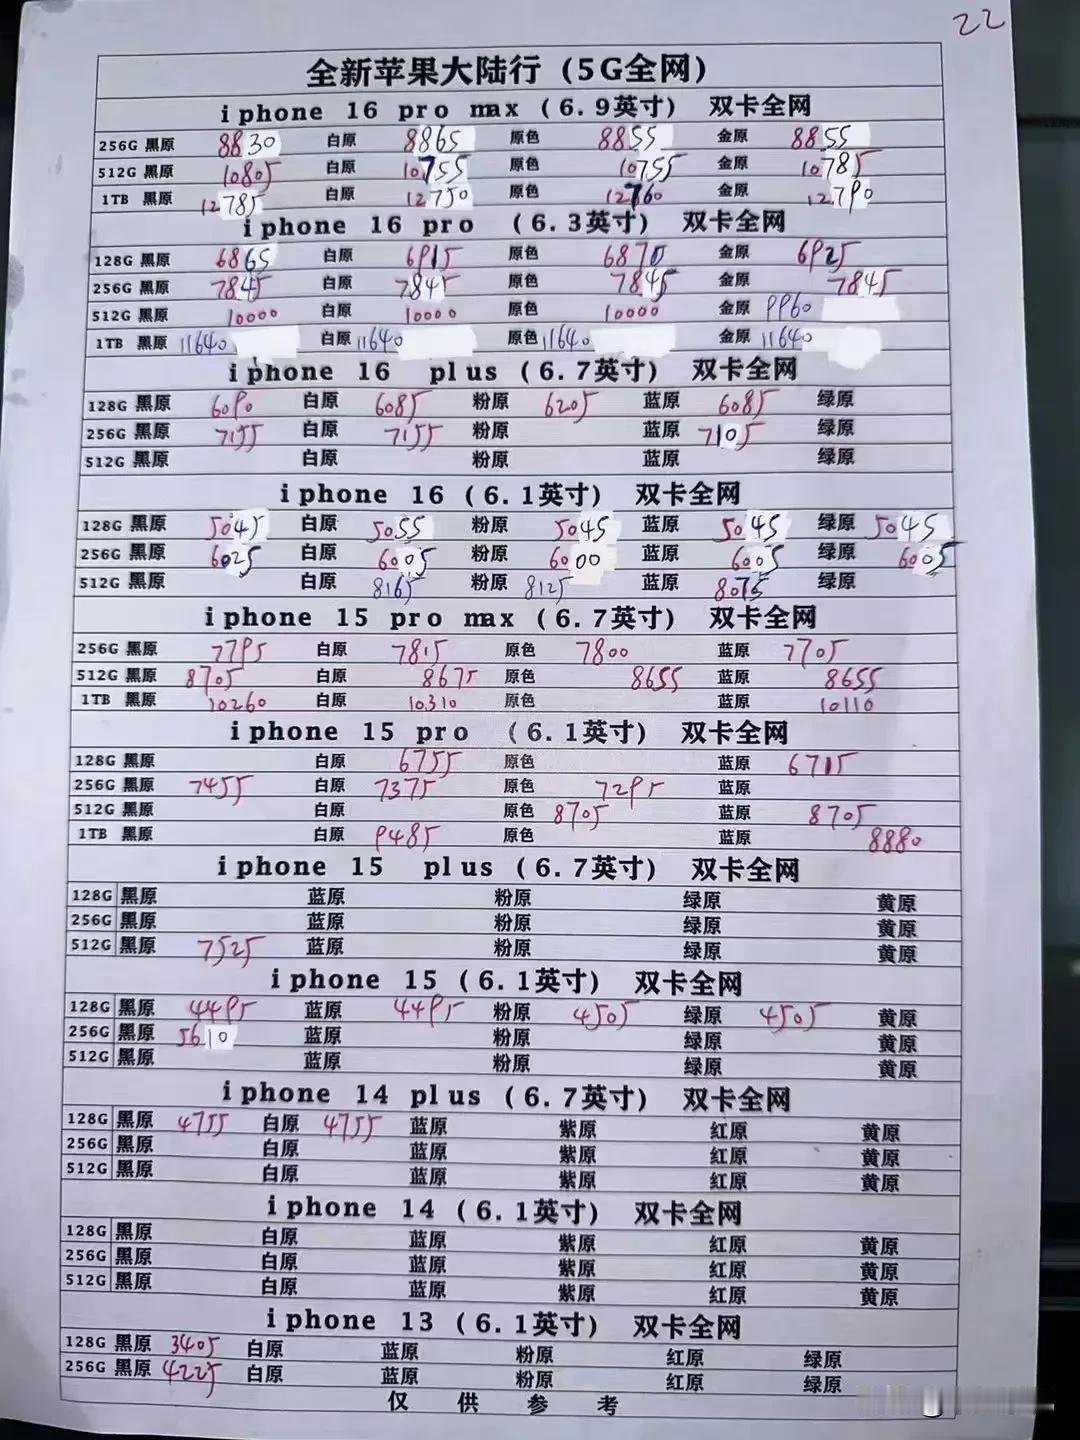 22
全新苹果大陆行（5G全网）
iphone 16 pro max（6.9英寸） 双卡全网
256G 黑原 8830 白原 8865 原色 8855 金原 8855
512G 黑原 10805 白原 10755 原色 10755 金原 10785
1TB 黑原 12785 白原 12750 原色 12760 金原 12790
iphone 16 pro （6.3英寸） 双卡全网
128G 黑原 6865 白原 6915 原色 6870 金原 6925
256G 黑原 7845 白原 7845 原色 7845 金原 7845
512G 黑原 10000 白原 10000 原色 10000 金原 9960
1TB 黑原 11640 白原 11640 原色 11640 金原 11640
iphone 16 plus（6.7英寸） 双卡全网
128G 黑原 6090 白原 6085 粉原 6205 蓝原 6085 绿原
256G 黑原 7155 白原 7155 粉原 蓝原 7105 绿原
512G 黑原 白原 粉原 蓝原 绿原
iphone 16（6.1英寸） 双卡全网
128G 黑原 5045 白原 5055 粉原 5045 蓝原 5045 绿原 5045
256G 黑原 6025 白原 6005 粉原 6000 蓝原 6005 绿原 6005
512G 黑原 白原 8165 粉原 8125 蓝原 8075 绿原
iphone 15 pro max（6.7英寸） 双卡全网
256G 黑原 7795 白原 7815 原色 7800 蓝原 7705
512G 黑原 8705 白原 8675 原色 8655 蓝原 8655
1TB 黑原 10260 白原 10310 原色 蓝原 10110
iphone 15 pro （6.1英寸） 双卡全网
128G 黑原 白原 6755 原色 蓝原 6715
256G 黑原 7455 白原 7375 原色 7295 蓝原
512G 黑原 白原 原色 8705 蓝原 8705
1TB 黑原 白原 9485 原色 蓝原 8880
iphone 15 plus（6.7英寸） 双卡全网
128G 黑原 蓝原 粉原 绿原 黄原
256G 黑原 蓝原 粉原 绿原 黄原
512G 黑原 7525 蓝原 粉原 绿原 黄原
iphone 15（6.1英寸） 双卡全网
128G 黑原 4495 蓝原 4495 粉原 4505 绿原 4505 黄原
256G 黑原 5610 蓝原 粉原 绿原 黄原
512G 黑原 蓝原 粉原 绿原 黄原
iphone 14 plus（6.7英寸） 双卡全网
128G 黑原 4755 白原 4755 蓝原 紫原 红原 黄原
256G 黑原 白原 蓝原 紫原 红原 黄原
512G 黑原 白原 蓝原 紫原 红原 黄原
iphone 14（6.1英寸） 双卡全网
128G 黑原 白原 蓝原 紫原 红原 黄原
256G 黑原 白原 蓝原 紫原 红原 黄原
512G 黑原 白原 蓝原 紫原 红原 黄原
iphone 13（6.1英寸） 双卡全网
128G 黑原 3405 白原 蓝原 粉原 红原 绿原
256G 黑原 4225 白原 蓝原 粉原 红原 绿原
仅供参考